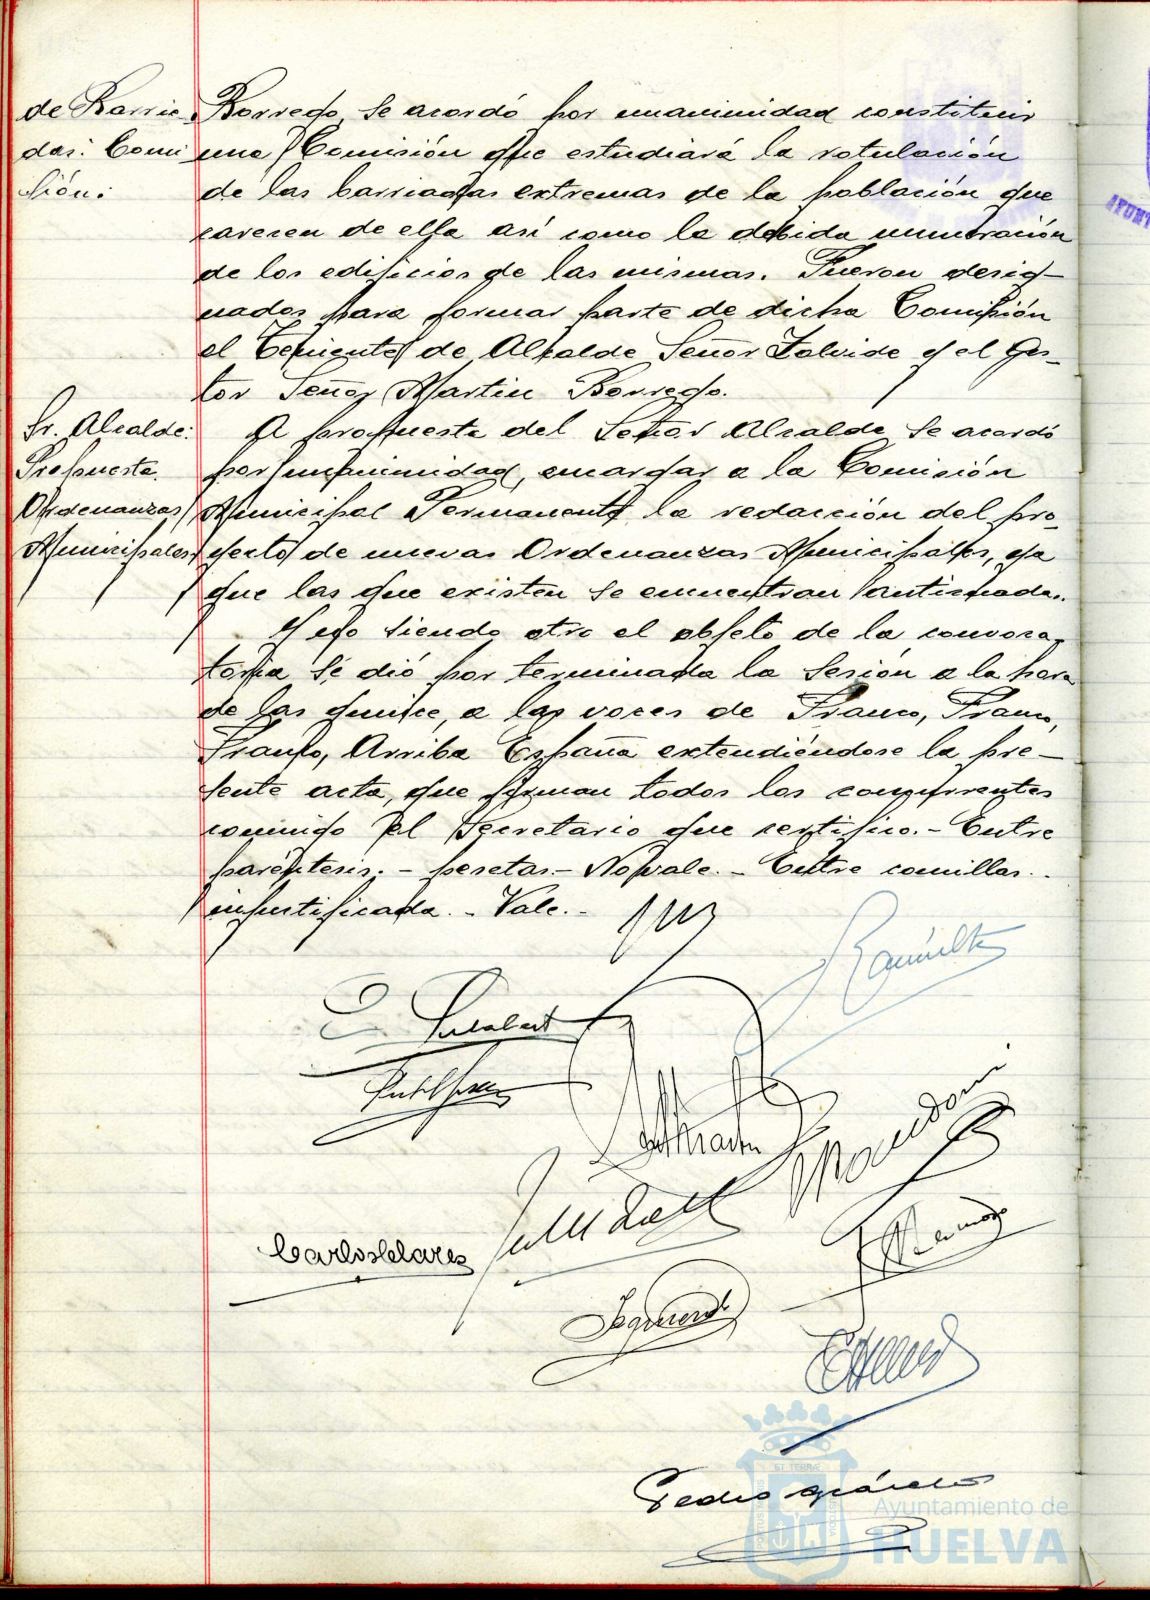 de Barria-
das: Comi
sión:
Borrego, se acordó por unanimidad constituir
una Comisión que estudiará la rotulación
de las barriadas extremas de la población que
carecen de ella así como la debida numeración
de los edificios de las mismas. Fueron desig-
nados para formar parte de dicha Comisión
el Teniente de Alcalde Señor Zalvide y el Ges-
tor Señor Martin Borrego.
Sr. Alcalde:
Propuesta.
Ordenanzas
Municipales.
A propuesta del Señor Alcalde se acordó
por unanimidad, encargar a la Comisión
Municipal Permanente la redacción del pro-
yecto de nuevas Ordenanzas Municipales, ya
que las que existen se encuentran anticuadas.
Y no siendo otro el objeto de la convoca-
toria se dió por terminada la sesión a la hora
de las quince, a las voces de Franco, Franco,
Franco, Arriba España extendiéndose la pre-
sente acta, que firman todos los concurrentes
conmigo el Secretario que certifico.- Entre
paréntesis.- pesetas.- No vale.- Entre comillas.-
injustificada.- Vale.-
Pedro
ET TERRÆ
Ayuntamiento de
HUELVA